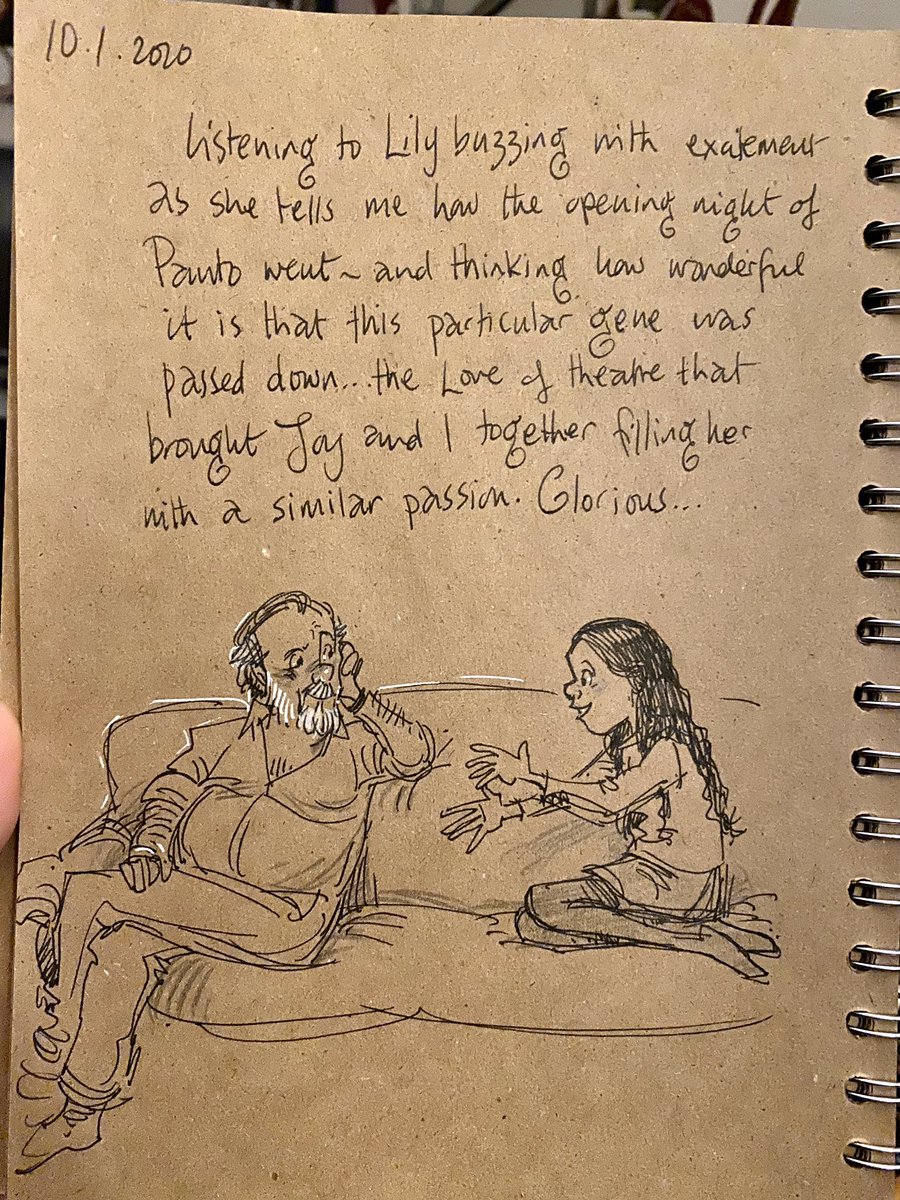 10.1.2020
Listening to Lily buzzing with excitement
as she tells me how the opening night of
Panto went~ and thinking how wonderful
it is that this particular gene was
passed down...the Love of theatre that
brought Joy and I together filling her
with a similar passion. Glorious...